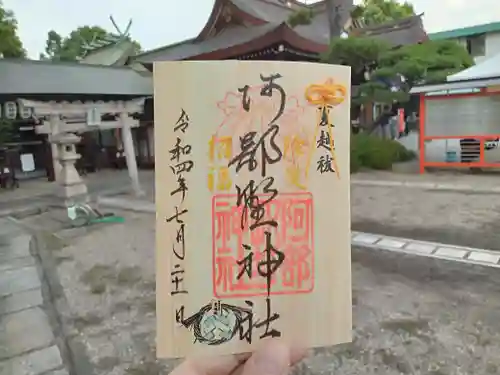 夏越祓
阿部野神社
招福
阿部野神社
令和四年七月二十一日